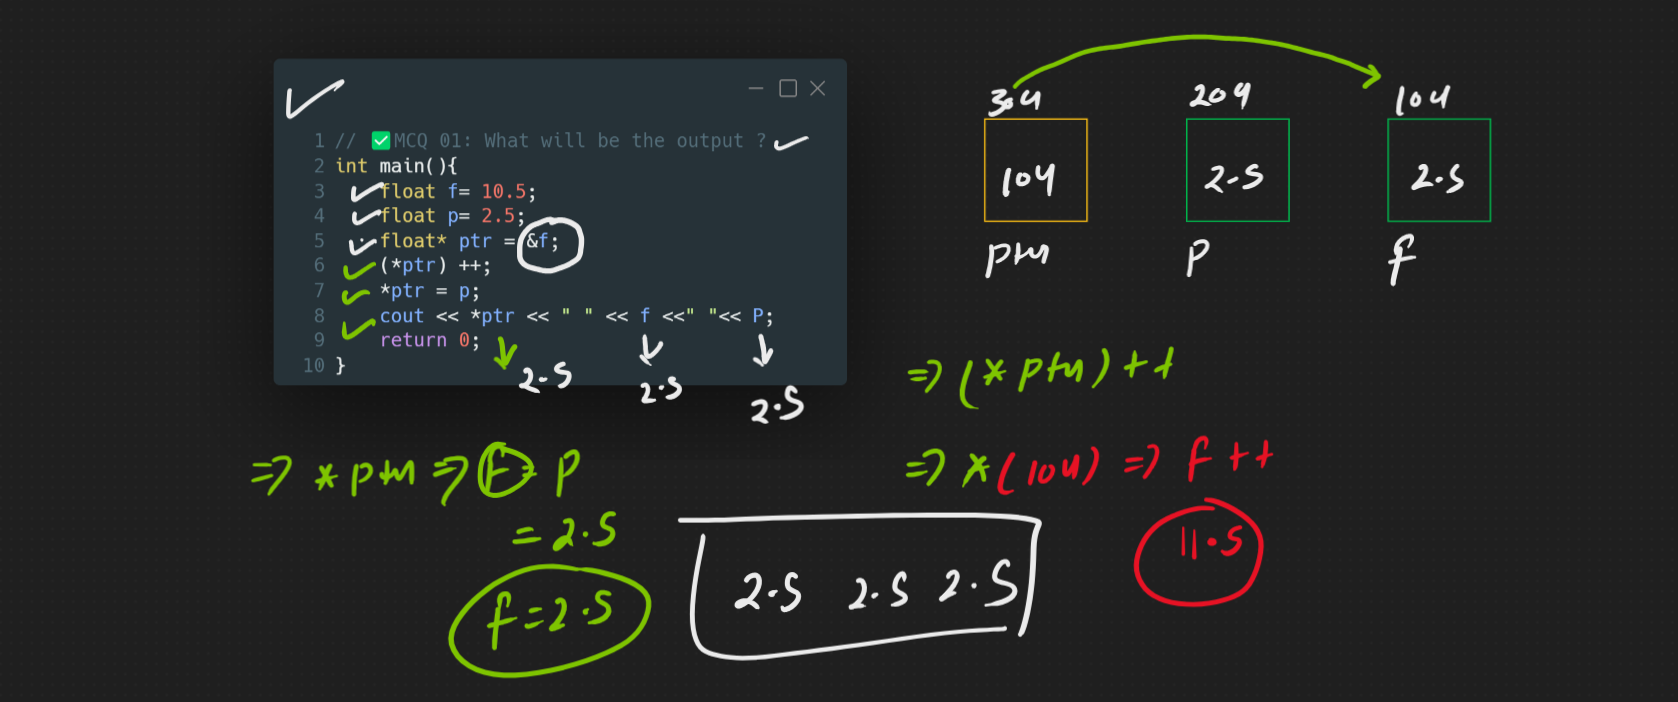 1 // ✅MCQ 01: What will be the output ?
2 int main(){
3 float f= 10.5;
4 float p= 2.5;
5 float* ptr = &f;
6 (*ptr) ++;
7 *ptr = p;
8 cout << *ptr << " " << f <<" "<< P;
9 return 0;
10 }
2.5 2.5 2.5
304 204 104
104 2.5 2.5
ptr p f
=> (*ptr)++
=> *(104) => f++
11.5
=> *ptr => f = p
= 2.5
f=2.5
2.5 2.5 2.5